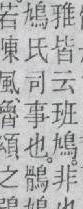 雅皆云班鳩。非
鳩氏司事也。鶻鳩
若陳風、魯頌之